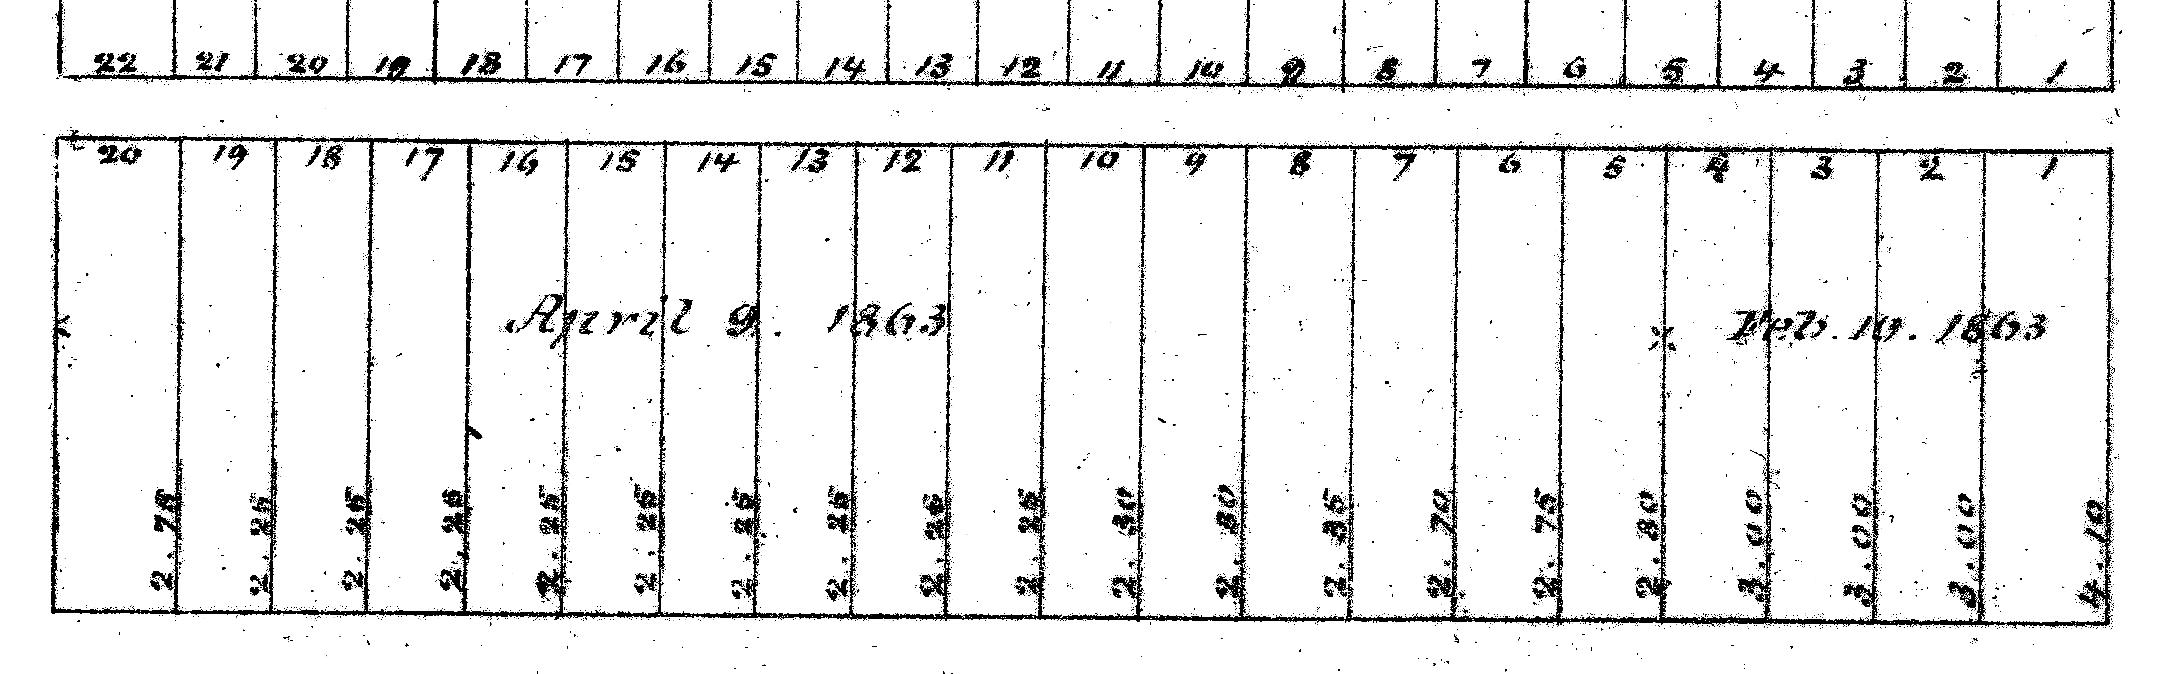 22 21 20 19 18 17 16 15 14 13 12 11 10 9 8 7 6 5 4 3 2 1
20 19 18 17 16 15 14 13 12 11 10 9 8 7 6 5 4 3 2 1
April 9. 1863 * Feb. 10. 1863
2.75 2.25 2.25 2.25 2.25 2.25 2.25 2.25 2.25 2.25 2.30 2.30 2.35 2.70 2.75 2.80 3.00 3.00 3.00 4.10